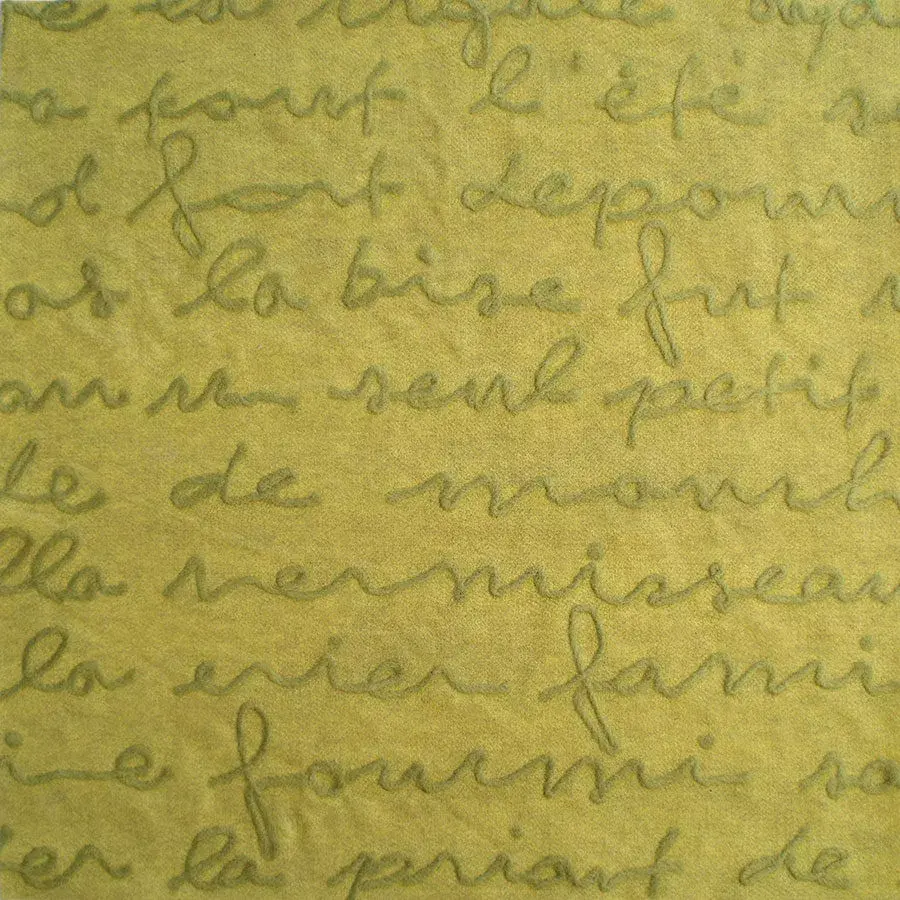 la cigale aya
a tout l'été
d fort depour
as la bise fut
au un seul petit
de de mouch
lla vermisseau
la crier fami
e fourmi sa
er la priant de